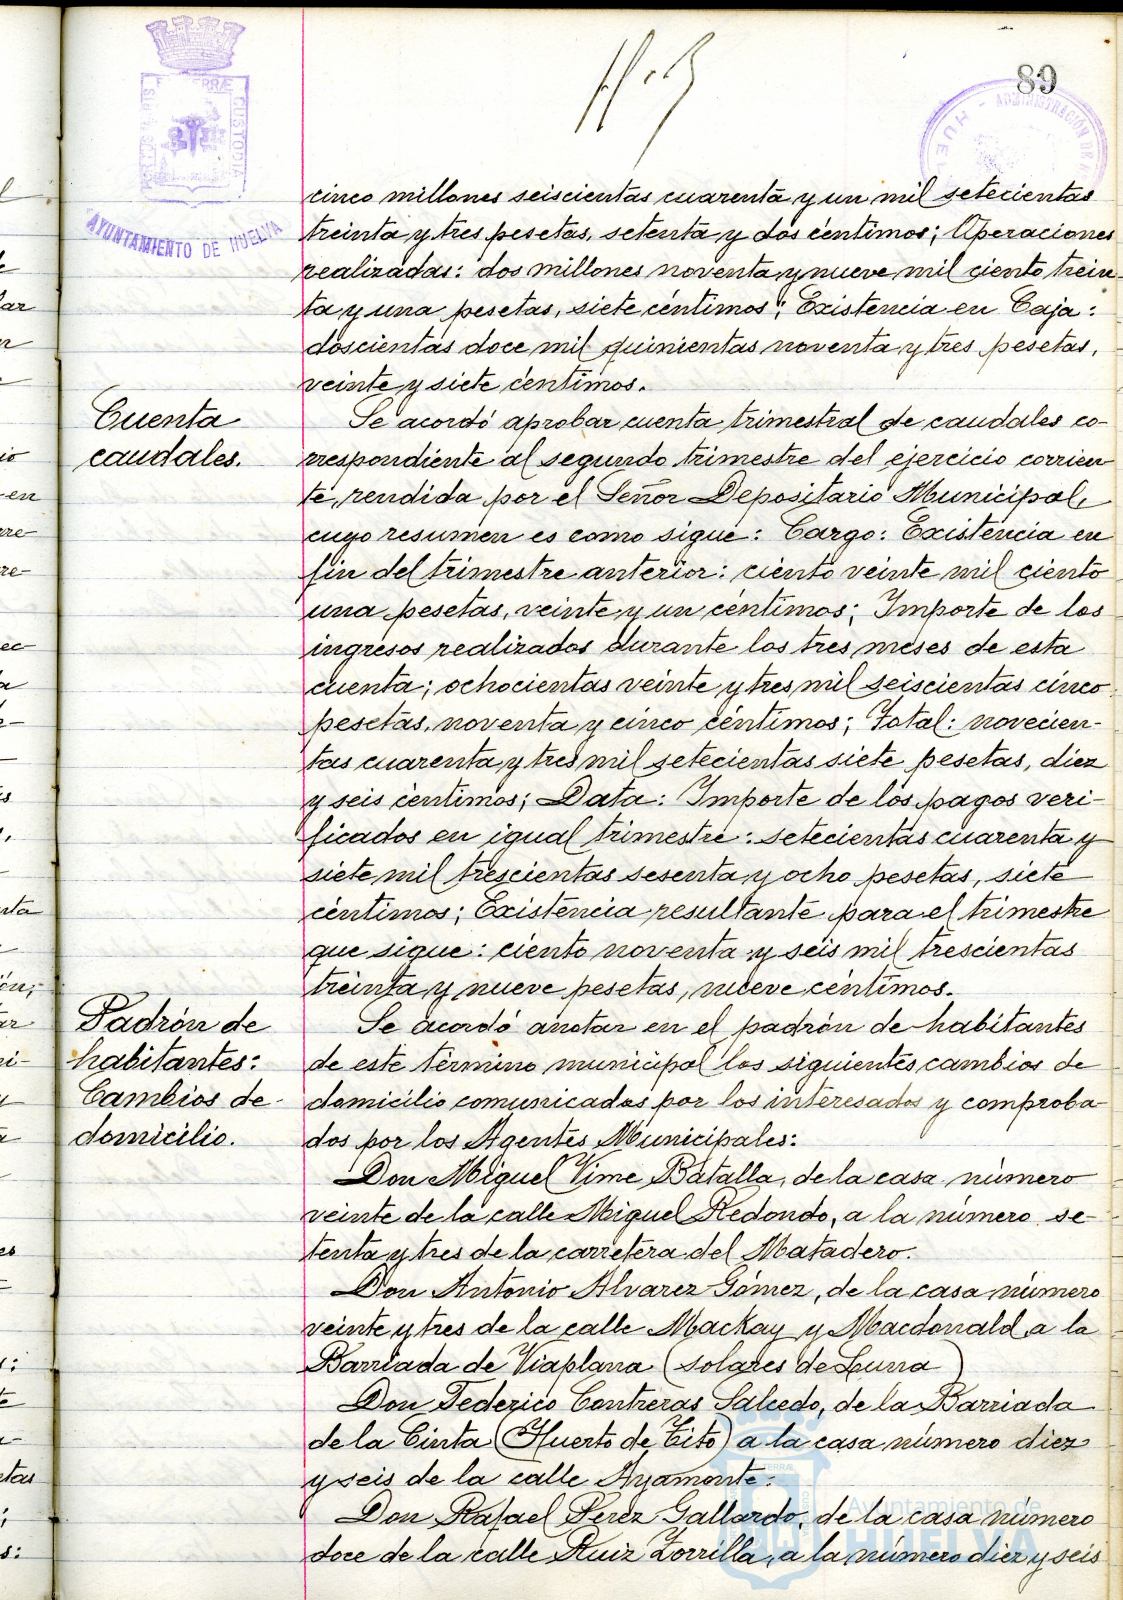 89
PORTUS MARIS ET TERRÆ CUSTODIA
AYUNTAMIENTO DE HUELVA
ADMINISTRACIÓN DE
HUEL
cinco millones seiscientas cuarenta y un mil setecientas
treinta y tres pesetas, setenta y dos céntimos; Operaciones
realizadas: dos millones noventa y nueve mil ciento trein-
ta y una pesetas, siete céntimos; Existencia en Caja:
doscientas doce mil quinientas noventa y tres pesetas,
veinte y siete céntimos.
Cuenta
caudales.
Se acordó aprobar cuenta trimestral de caudales co-
rrespondiente al segundo trimestre del ejercicio corrien-
te, rendida por el Señor Depositario Municipal,
cuyo resumen es como sigue: Cargo: Existencia en
fin del trimestre anterior: ciento veinte mil ciento
una pesetas, veinte y un céntimos; Importe de los
ingresos realizados durante los tres meses de esta
cuenta; ochocientas veinte y tres mil seiscientas cinco
pesetas, noventa y cinco céntimos; Total: novecien-
tas cuarenta y tres mil setecientas siete pesetas, diez
y seis céntimos; Data: Importe de los pagos veri-
ficados en igual trimestre: setecientas cuarenta y
siete mil trescientas sesenta y ocho pesetas, siete
céntimos; Existencia resultante para el trimestre
que sigue: ciento noventa y seis mil trescientas
treinta y nueve pesetas, nueve céntimos.
Padrón de
habitantes:
Cambios de
domicilio.
Se acordó anotar en el padrón de habitantes
de este término municipal los siguientes cambios de
domicilio comunicados por los interesados y comproba-
dos por los Agentes Municipales:
Don Miguel Vime Batalla, de la casa número
veinte de la calle Miguel Redondo, a la número se-
tenta y tres de la carretera del Matadero.
Don Antonio Alvarez Gómez, de la casa número
veinte y tres de la calle Mackay y Macdonald, a la
Barriada de Viaplana (solares de Luna)
Don Federico Contreras Salcedo, de la Barriada
de la Cinta (Huerto de Tito) a la casa número diez
y seis de la calle Ayamonte.
Don Rafael Perez Gallardo, de la casa número
doce de la calle Ruiz Zorrilla, a la número diez y seis
Ayuntamiento de
HUELVA